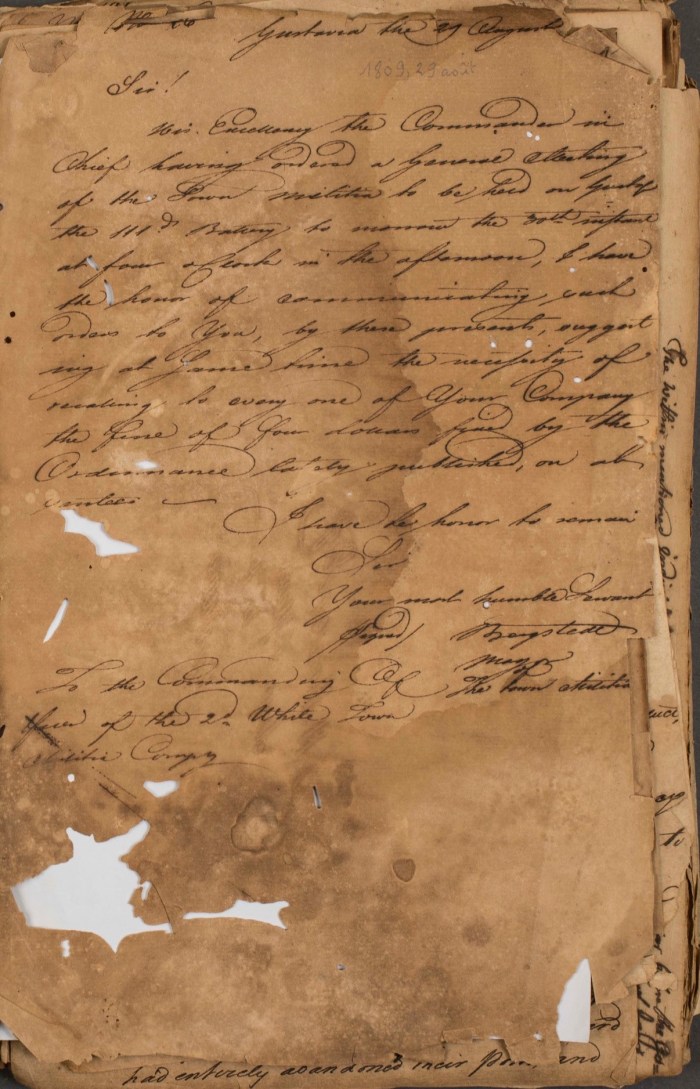 Gustavia the 29 August
1809, 29 août
Sir!
His Excellency the Commander in
Chief having ordered a General Meeting
of the Town Militia to be held on Gustaf
the III.d Battery to morrow the 30th instant
at four o Clock in the afternoon, I have
the honor of communicating such
orders to You, by these presents, suggest
ing at Same time the necessity of
recalling to every one of Your Company
the fine of four dollars fixed by the
Ordonnance lately published, on ab
sentees
I have the honor to remain
Sir
Your most humble Servant
Signed/ Bergstedt
Major
To the Commanding Of The Town Militia
ficer of the 2.d White Town
Militia Compy
The within mentioned
to
had entirely abandoned their and